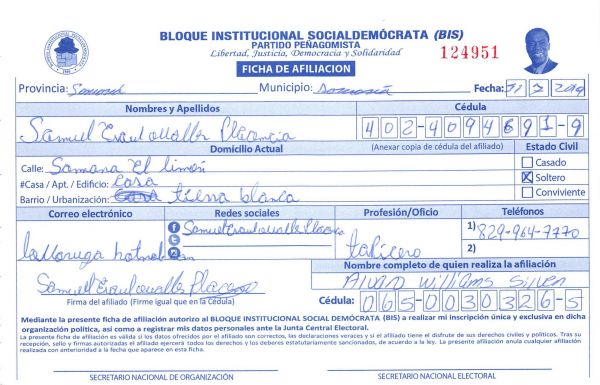 BLOQUE INSTITUCIONAL SOCIALDEMÓCRATA (BIS)
PARTIDO PEÑAGOMISTA
Libertad, Justicia, Democracia y Solidaridad
124951
FICHA DE AFILIACION
Provincia: Samaná Municipio: Samaná Fecha:
Nombres y Apellidos Cédula
Samuel Placencia 402-4094691-9
Domicilio Actual (Anexar copia de cédula del afiliado) Estado Civil
Calle: Samana El limón
Casado
#Casa / Apt. / Edificio: Casa
Soltero
Barrio / Urbanización: tierra blanca
Conviviente
Correo electrónico Redes sociales Profesión/Oficio Teléfonos
Samuel
1) 829-964-7770
hotmail
2)
Nombre completo de quien realiza la afiliación
Samuel
Alvaro Williams
Firma del afiliado (Firme igual que en la Cédula)
Cédula: 065-0030326-5
Mediante la presente ficha de afiliación autorizo al BLOQUE INSTITUCIONAL SOCIAL DEMÓCRATA (BIS) a realizar mi inscripción única y exclusiva en dicha
organización política, así como a registrar mis datos personales ante la Junta Central Electoral.
La presente ficha de afiliación es válida si los datos ofrecidos por el afiliado son correctos, las declaraciones veraces y si el afiliado tiene el disfrute de sus derechos civiles y políticos. Tras su
recepción, sello y firmas autorizadas el afiliado ejercerá todos los derechos y los deberes estatutariamente sancionados, de acuerdo a la ley. La presente afiliación anula cualquier afiliación
realizada con anterioridad a la fecha que aparece en esta ficha.
SECRETARIO NACIONAL DE ORGANIZACIÓN SECRETARIO NACIONAL ELECTORAL